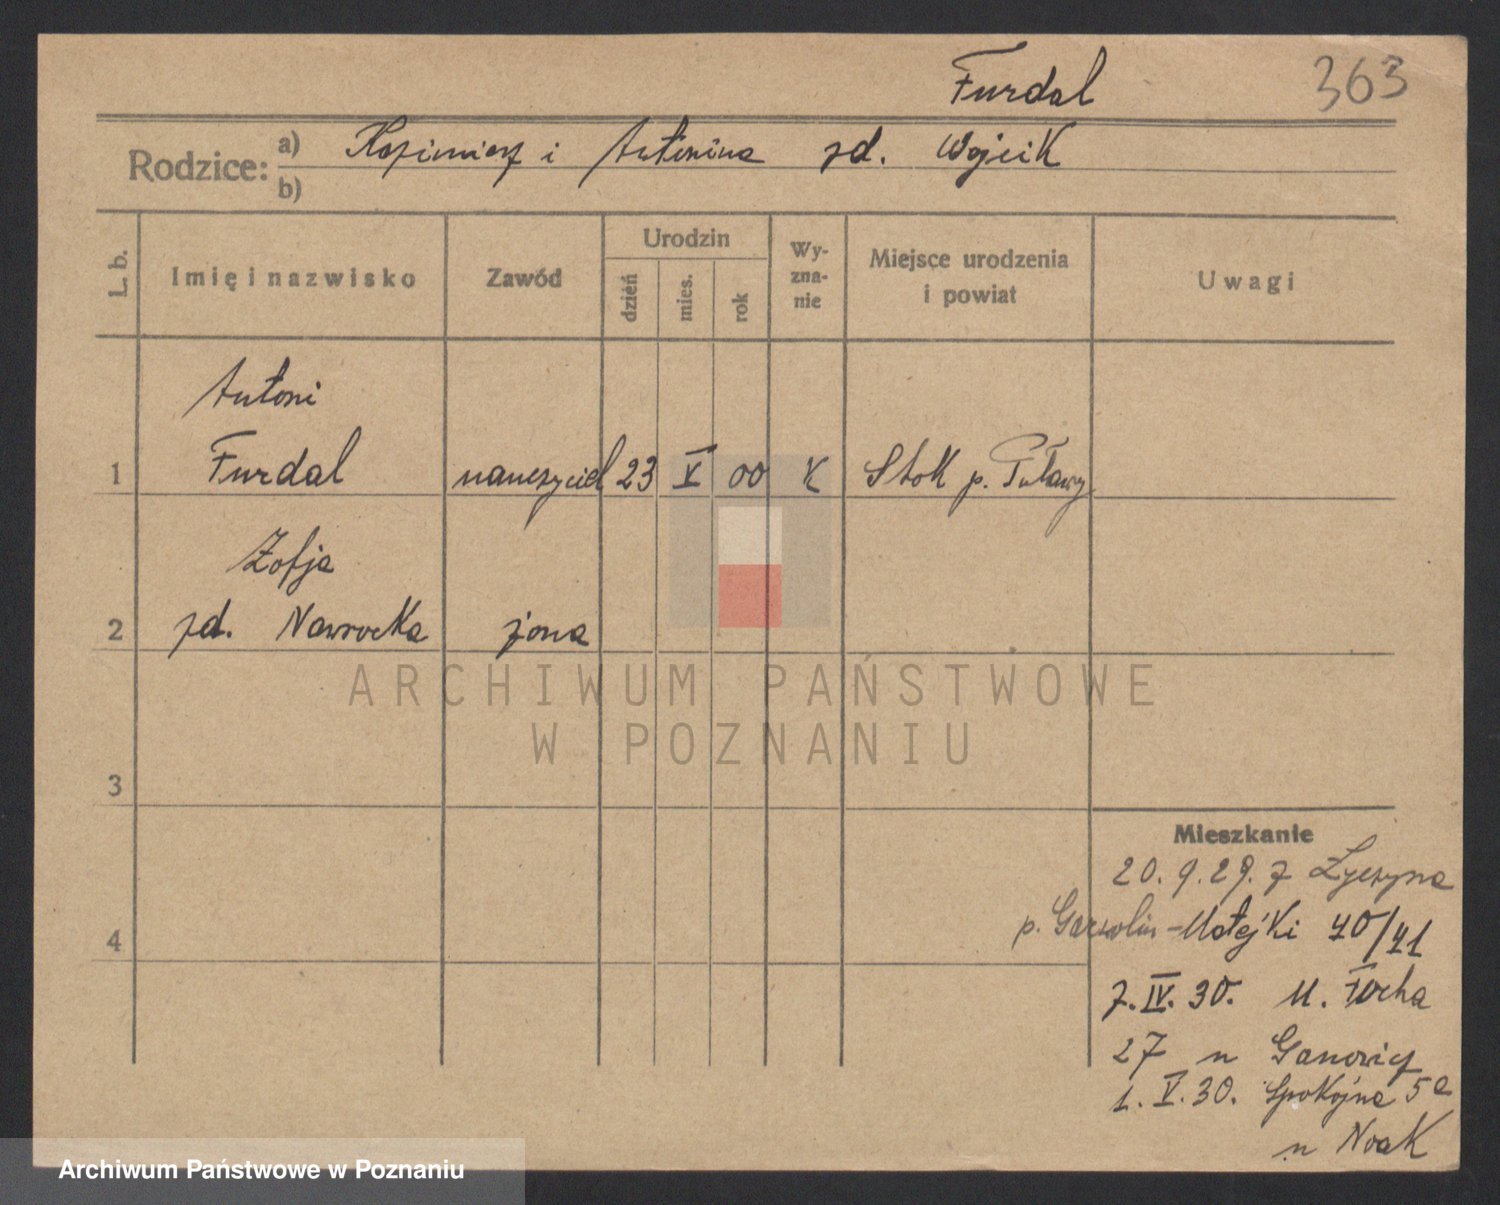 Furdal 363
Rodzice: a) Kazimierz i Antonina zd. Wójcik
b)
L. b. Imię i nazwisko Zawód Urodzin dzień mies. rok Wy-zna-nie Miejsce urodzenia i powiat Uwagi
Antoni
1 Furdal nauczyciel 23 V 00 K Stok p. Puławy
Zofja
2 zd. Nawrocka żona
ARCHIWUM PAŃSTWOWE
W POZNANIU
3
Mieszkanie
20.9.29. z Życzyna
p. Garwolin - Matejki 40/41
4
7.IV.30. M. Focha
27 u Ganowicz
1.V.30. Spokojna 5a
u Noak
Archiwum Państwowe w Poznaniu